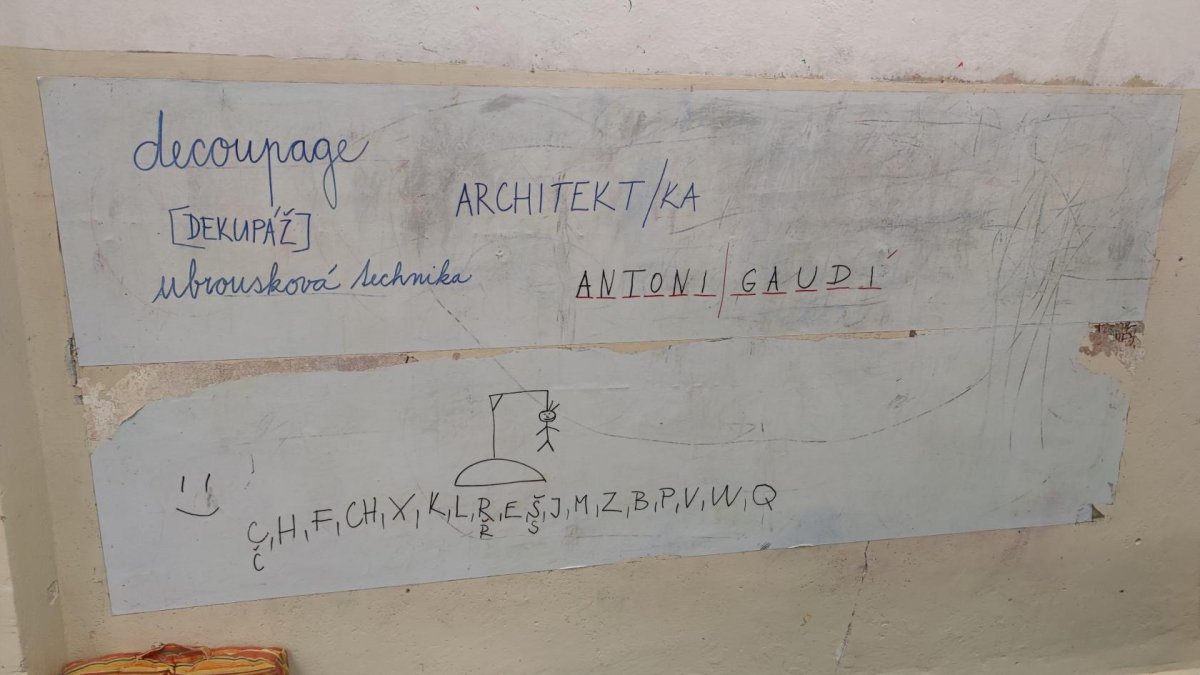 decoupage
[DEKUPÁŽ]
ubrousková technika
ARCHITEKT/KA
ANTONI/GAUDÍ
C, H, F, CH, X, K, L, R, E, Š, J, M, Z, B, P, V, W, Q
Č Ř S